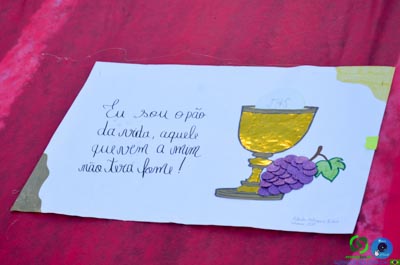 Eu sou o pão
da vida, aquele
que vem a mim
não terá fome!